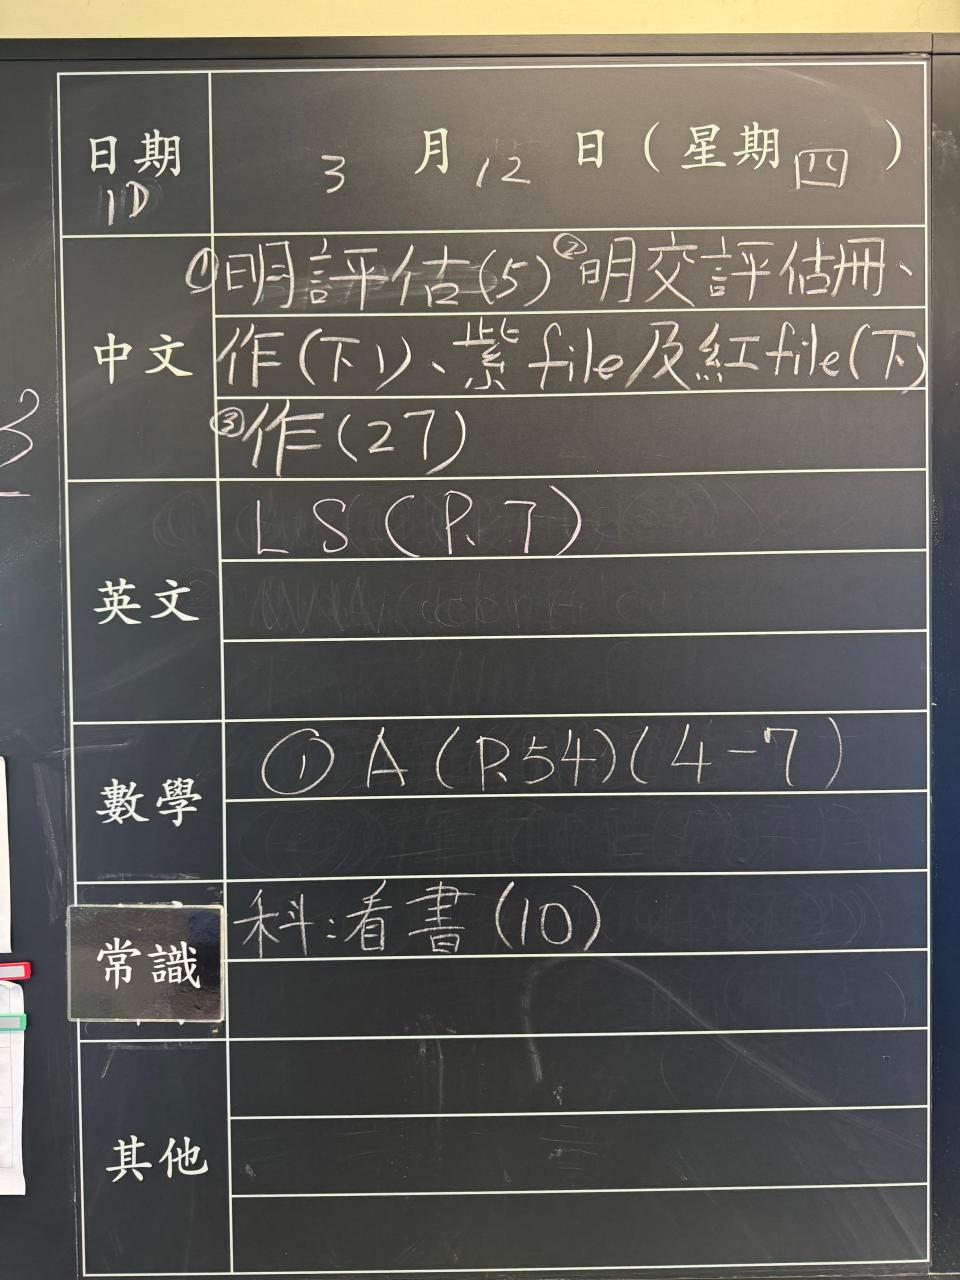 日期 3 月 12 日（星期四）
1D
中文
①明評估(5) ②明交評估冊、
作(下1)、紫file及紅file(下)
③作(27)
英文
LS(P.7)
數學
①A(P.54)(4-7)
常識
科:看書(10)
其他